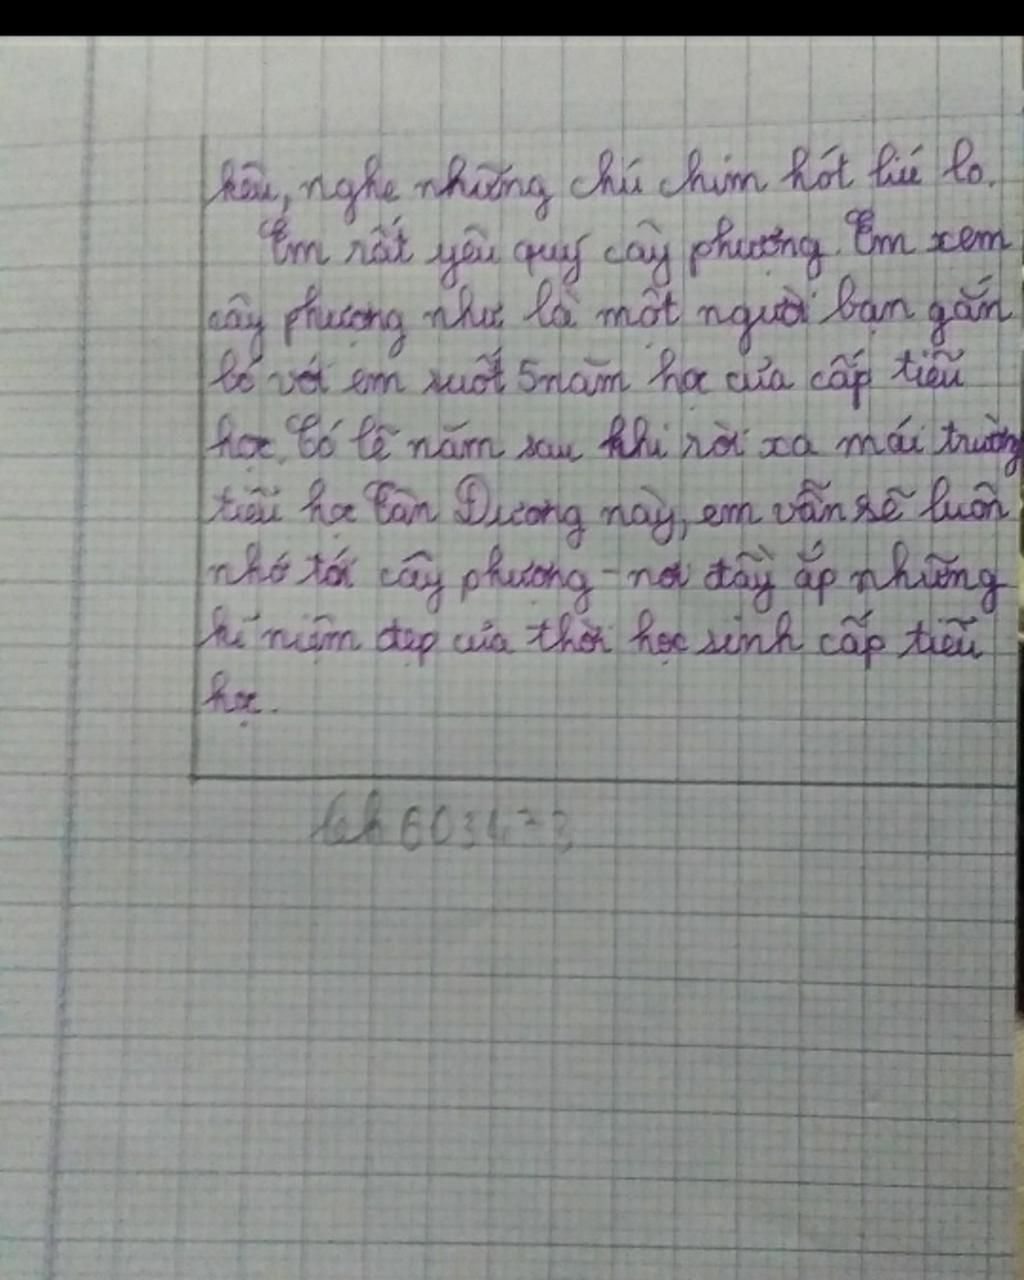 hâu, nghe những chú chim hót líu lo.
Em rất yêu quý cây phượng. Em xem
cây phượng như là một người bạn gắn
bó với em suốt 5 năm học của cấp tiểu
học. Có lẽ năm sau khi rời xa mái trường
tiểu học Tân Dương này, em vẫn sẽ luôn
nhớ tới cây phượng - nơi đầy ắp những
kỉ niệm đẹp của thời học sinh cấp tiểu
học.